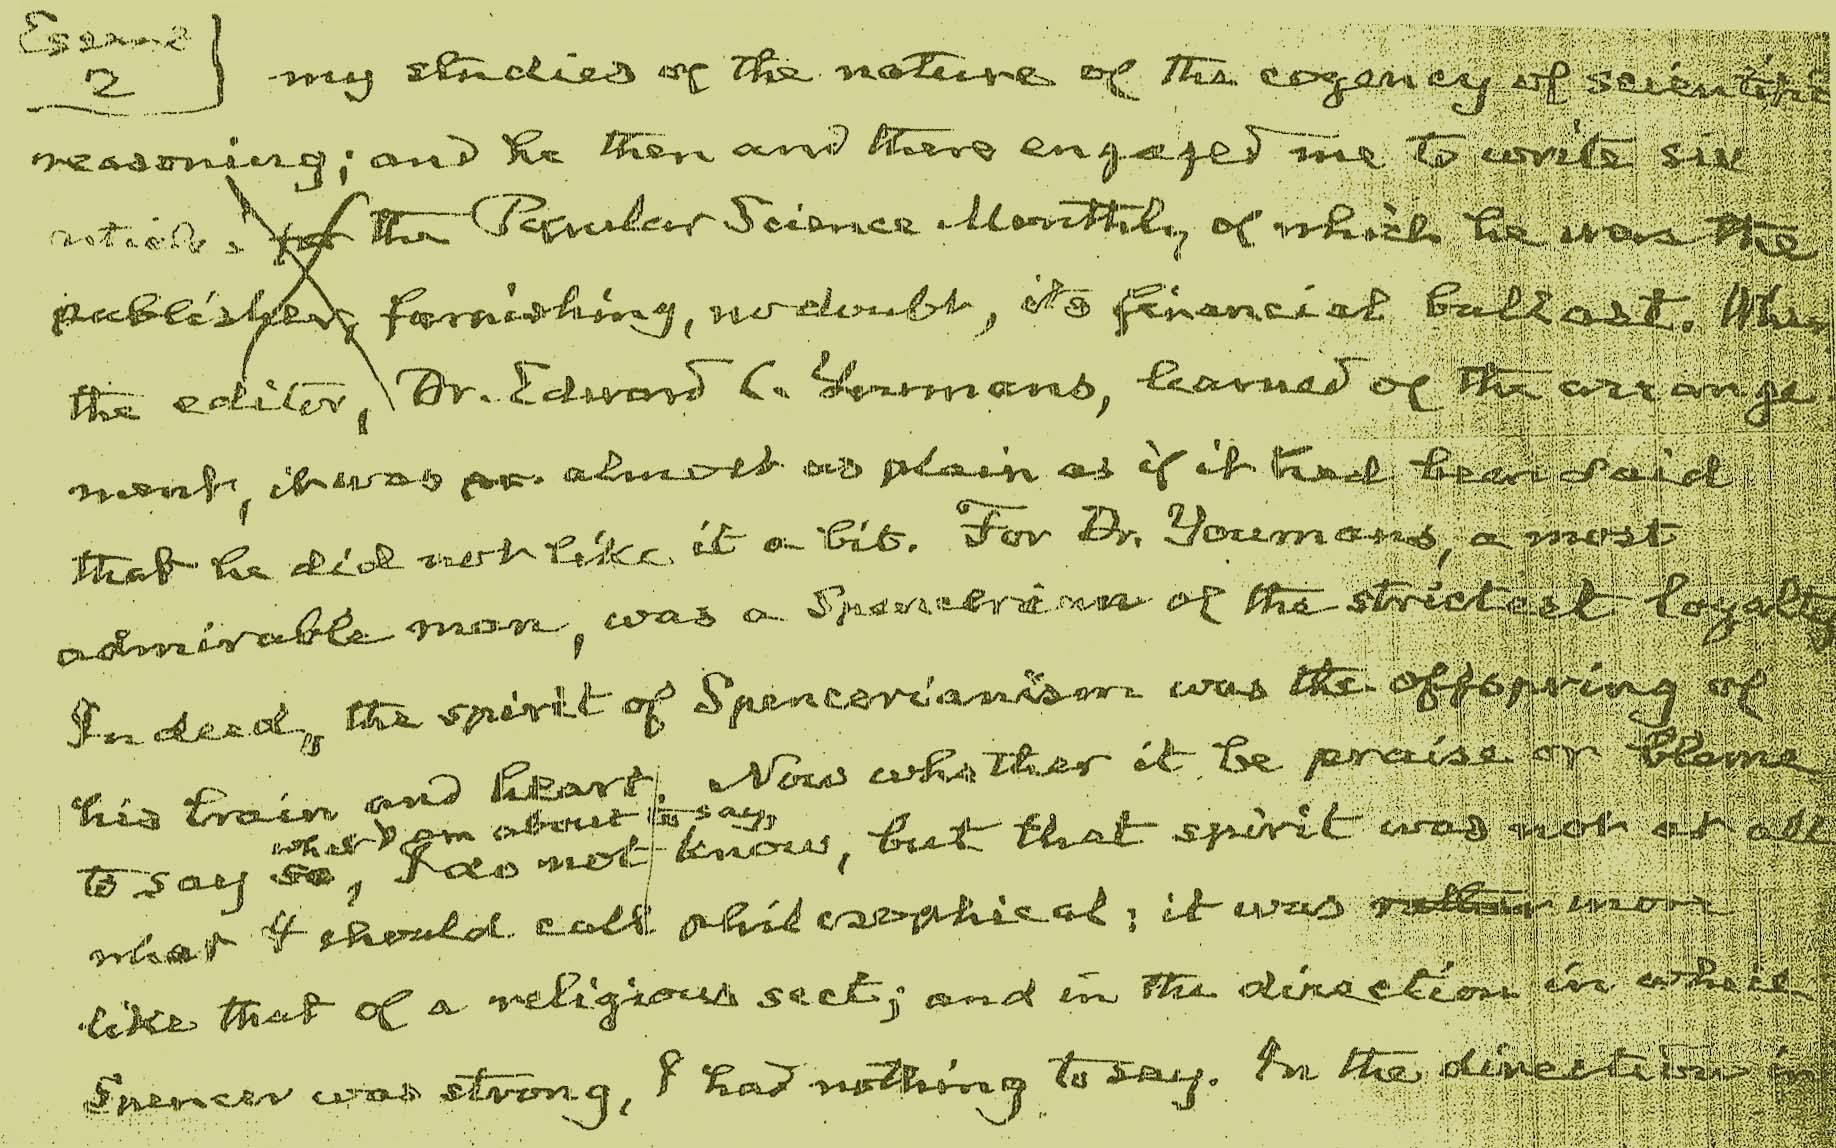 Essence
2
my studies of the nature of the cogency of scientific
reasoning; and he then and there engaged me to write six
articles for the Popular Science Monthly, of which he was the
publisher, furnishing, no doubt, its financial ballast. When
the editor, Dr. Edward L. Youmans, learned of the arrange-
ment, it was almost as plain as if it had been said
that he did not like it a bit. For Dr. Youmans, a most
admirable man, was a Spencerian of the strictest loyalty
Indeed, the spirit of Spencerianism was the offspring of
his brain and heart. Now whether it be praise or blame
what I am about to say,
to say so, I do not know, but that spirit was not at all
what I should call philosophical; it was rather more
like that of a religious sect; and in the direction in which
Spencer was strong, I had nothing to say. In the direction in